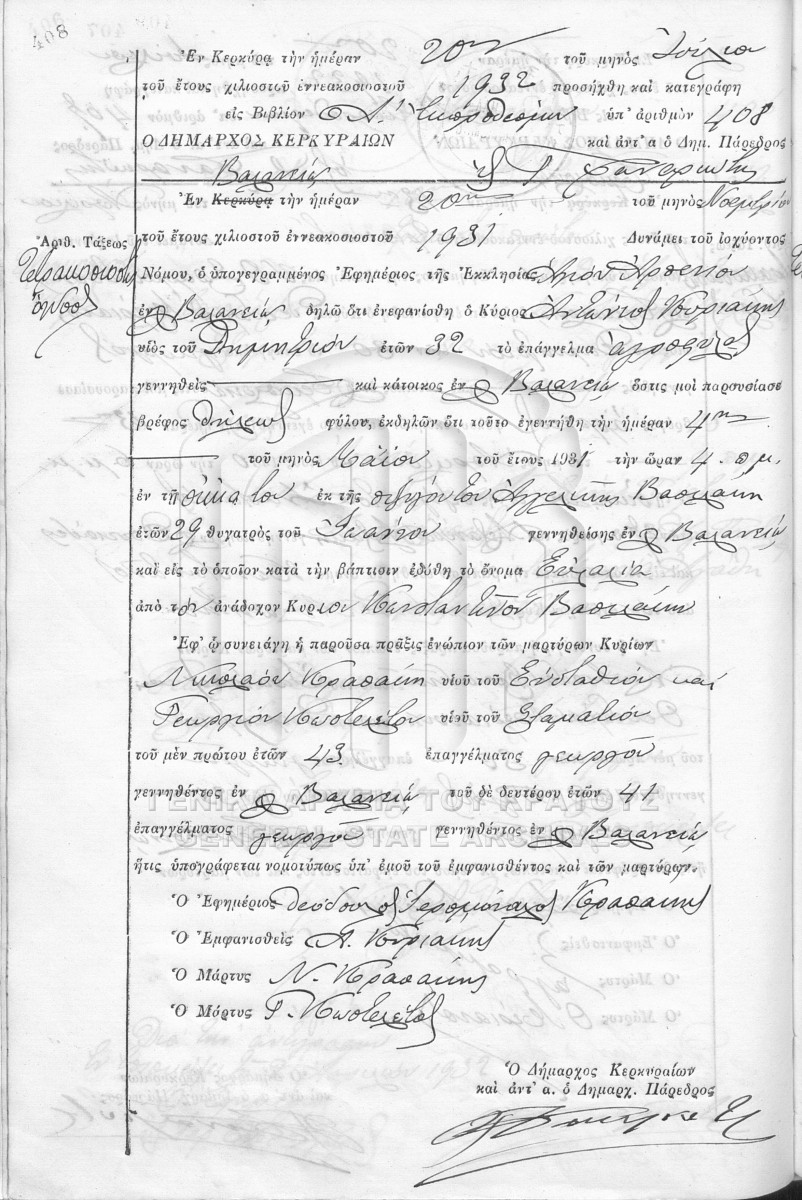 408
Ἐν Κερκύρᾳ τὴν ἡμέραν 20ην τοῦ μηνὸς Ἰουλίου
τοῦ ἔτους χιλιοστοῦ ἐννεακοσιοστοῦ 1932 προσήχθη καὶ κατεγράφη
εἰς Βιβλίον Α΄ ὑπ' ἀριθμὸν 408
Ο ΔΗΜΑΡΧΟΣ ΚΕΡΚΥΡΑΙΩΝ καὶ ἀντ' α ὁ Δημ. Πάρεδρος
Βαλανειὸ
Ἐν Κερκύρᾳ τὴν ἡμέραν 20ην τοῦ μηνὸς Νοεμβρίου
Ἀριθ. Τάξεως τοῦ ἔτους χιλιοστοῦ ἐννεακοσιοστοῦ 1931 Δυνάμει τοῦ ἰσχύοντος
Τετρακόσια ὀκτώ
Νόμου, ὁ ὑπογεγραμμένος Ἐφημέριος τῆς Ἐκκλησίας Ἁγίου Ἀρσενίου
ἐν Βαλανειὸ δηλῶ ὅτι ἐνεφανίσθη ὁ Κύριος Ἀντώνιος Κυριάκης
υἱὸς τοῦ Δημητρίου ἐτῶν 32 τὸ ἐπάγγελμα ἀγροφύλαξ
γεννηθεὶς καὶ κάτοικος ἐν Βαλανειὸ ὅστις μοι παρουσίασε
βρέφος θήλεος φύλου, ἐκδηλῶν ὅτι τοῦτο ἐγεννήθη τὴν ἡμέραν 4ην
τοῦ μηνὸς Μαΐου τοῦ ἔτους 1931 τὴν ὥραν 4 π.μ.
ἐν τῇ οἰκίᾳ του ἐκ τῆς συζύγου του Ἀγγελικῆς Βασιλάκη
ἐτῶν 29 θυγατρὸς τοῦ Ἰωάννου γεννηθείσης ἐν Βαλανειὸ
καὶ εἰς τὸ ὁποῖον κατὰ τὴν βάπτισιν ἐδόθη τὸ ὄνομα Εὐλαλία
ἀπὸ τὸν ἀνάδοχον Κύριον Κωνσταντῖνον Βασιλάκη
Ἐφ' ᾧ συνετάγη ἡ παροῦσα πρᾶξις ἐνώπιον τῶν μαρτύρων Κυρίων
Νικολάου Κραπάκη υἱοῦ τοῦ Εὐσταθίου καὶ
Γεωργίου Κωστελέτου υἱοῦ τοῦ Σταματίου
τοῦ μὲν πρώτου ἐτῶν 43 ἐπαγγέλματος γεωργοῦ
γεννηθέντος ἐν Βαλανειὸ τοῦ δὲ δευτέρου ἐτῶν 41
ΓΕΝΙΚΑ ΑΡΧΕΙΑ ΤΟΥ ΚΡΑΤΟΥΣ
ἐπαγγέλματος γεωργοῦ γεννηθέντος ἐν Βαλανειὸ
GENERAL STATE ARCHIVES
ἥτις ὑπογράφεται νομοτύπως ὑπ' ἐμοῦ τοῦ ἐμφανισθέντος καὶ τῶν μαρτύρων.
Ὁ Ἐφημέριος Θεόδουλος Ἱερομόναχος Κραπάκης
Ὁ Ἐμφανισθεὶς Α. Κυριάκης
Ὁ Μάρτυς Ν. Κραπάκης
Ὁ Μάρτυς Γ. Κωστελέτος
Ὁ Δήμαρχος Κερκυραίων
καὶ ἀντ' α. ὁ Δημαρχ. Πάρεδρος